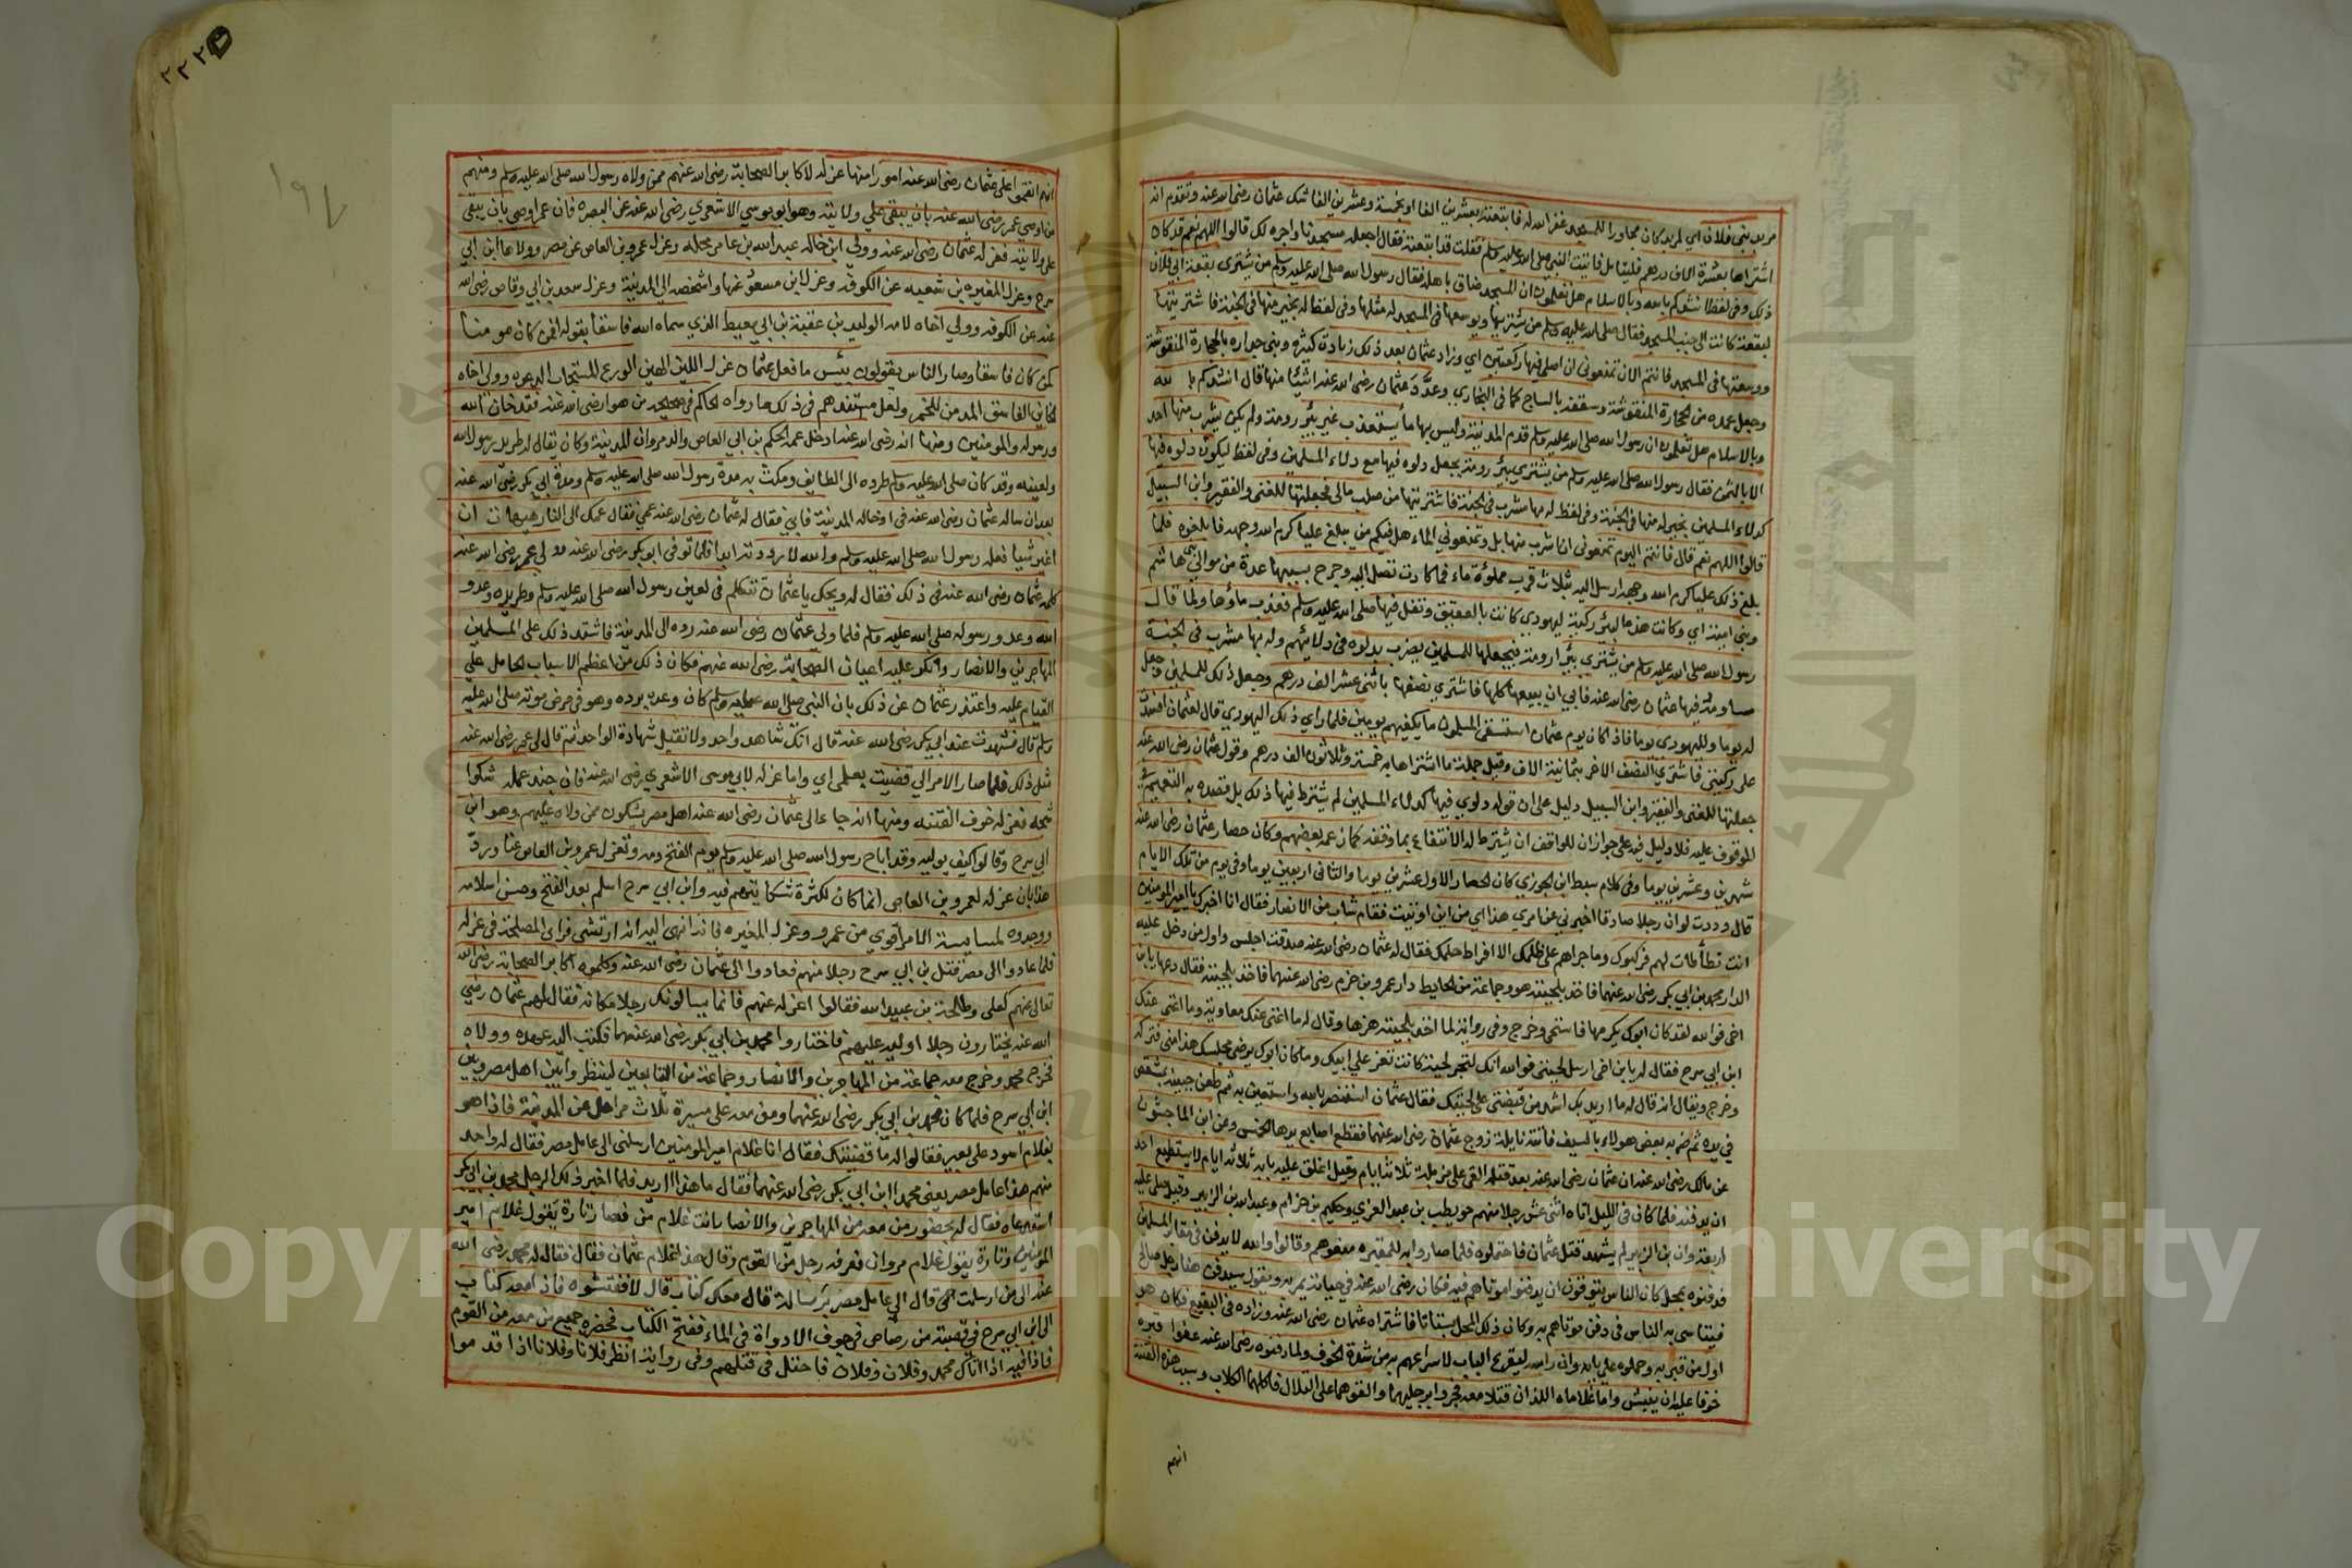 مربد بني فلان اي لمربد كان مجاورا للمسجد غفر الله له فابتعته بعشرين الفا او بخمسة وعشرين الفا شك عثمان رضى الله عنه وتقدم انه
اشتراها بعشرة الاف درهم فليتامل فاتيت النبي صلى الله عليه وسلم فقلت قد ابتعته فقال اجعله مسجدنا واجره لك قالوا اللهم نعم قد كان
ذلك وفي لفظ انشدكم بالله وبالاسلام هل تعلمون ان المسجد ضاق باهله فقال رسول الله صلى الله عليه وسلم من يشتري بقعة ال فلان
لبقعة كانت الى جنب المسجد فقال صلى الله عليه وسلم من يشتريها ويوسعها في المسجد له مثلها وفي لفظ له بخير منها في الجنة فاشتريتها
ووسعتها في المسجد فانتم الان تمنعوني ان اصلي فيها ركعتين اي وزاد عثمان بعد ذلك زيادة كثيرة وبنى جداره بالحجارة المنقوشة
وجعل عمده من الحجارة المنقوشة وسقفه بالساج كما في البخاري وعدد عثمان رضى الله عنه اشيا منها قال انشدكم بالله
وبالاسلام هل تعلمون ان رسول الله صلى الله عليه وسلم قدم المدينة وليس بها ما يستعذب غير بئر رومة ولم يكن يشرب منها احد
الا بالثمن فقال رسول الله صلى الله عليه وسلم من يشتري بئر رومة يجعل دلوه فيها مع دلاء المسلمين وفي لفظ ليكون دلوه فيها
كدلاء المسلمين بخير له منها في الجنة وفي لفظ له بها مشرب في الجنة فاشتريتها من صلب مالي فجعلتها للغني والفقير وابن السبيل
قالوا اللهم نعم قال فانتم اليوم تمنعوني ان اشرب منها بل وتمنعوني الماء هل فيكم من يبلغ عليا كرم الله وجهه فابلغوه فلما
بلغ ذلك عليا كرم الله وجهه ارسل اليه بثلاث قرب مملوة ماء فما كادت تصل اليه وجرح بسببها عدة من موالي بني هاشم
وبني امية اي وكانت هذه البئر ركية ليهودي كانت بالعقيق وتفل فيها صلى الله عليه وسلم فعذب ماؤها ولما قال
رسول الله صلى الله عليه وسلم من يشتري بئر ارومة فيجعلها للمسلمين يضرب بدلوه في دلائهم وله بها مشرب في الجنة
ساومه فيها عثمان رضى الله عنه فابى ان يبيعها كلها فاشترى نصفها باثنى عشر الف درهم وجعل ذلك للمسلمين وجعل
له يوما ولليهودي يوما فاذا كان يوم عثمان استسقى المسلمون ما يكفيهم يومين فلما راى ذلك اليهودي قال لعثمان افسدت
على ركيتي فاشترى النصف الاخر بثمانية الاف وقيل جملة ما اشتراها به خمسة وثلاثون الف درهم وقول عثمان رضى الله عنه
جعلتها للغني والفقير وابن السبيل دليل على ان قوله دلوي فيها كدلاء المسلمين لم يشترط فيها ذلك بل قصده به التعميم في
الموقوف عليه فلا دليل فيه على جواز ان للواقف ان يشترط له الانتفاع بما وقفه كما زعمه بعضهم وكان حصار عثمان رضى الله عنه
شهرين وعشرين يوما وفي كلام سبط ابن الجوزي كان الحصار الاول عشرين يوما والثاني اربعين يوما وفي يوم من تلك الايام
قال وددت لو ان رجلا صادقا اخبرني عن امري هذا اي من اين اوتيت فقام شاب من الانصار فقال انا اخبرك يا امير المومنين
انت تطأطات لهم فركبوك وما جراهم على ظلمك الا افراط حلمك فقال له عثمان رضى الله عنه صدقت اجلس واول من دخل عليه
الدار محمد بن ابي بكر رضى الله عنهما فاخذ بلحيته هو وجماعة من الحايط دار عمرو بن حزم رضى الله عنهما فاخذ بلحيته فقال دعها يا ابن
اخي فوالله لقد كان ابوك يكرمها فاستحى وخرج وفي رواية لما اخذ بلحيته هزها وقال له ما اغنى عنك معاوية وما اغنى عنك
ابن ابي سرح فقال له يا ابن اخي ارسل لحيتي فوالله انك لتجر لحية كانت تعز على ابيك وما كان ابوك يرضى مجلسك هذا مني فتركه
وخرج ويقال انه قال له ما اريد بك اشد من قبضتي على لحيتك فقال عثمان استنصر بالله واستعين به ثم طعن جبينه بمشقص
في يده ثم ضربه بعض هولاء بالسيف فاتته نايلة زوج عثمان رضى الله عنهما فقطع اصابع يدها الخمس وعن ابن الماجشون
عن مالك رضى الله عنه ان عثمان رضى الله عنه بعد قتله القي على مزبلة ثلاثة ايام وقيل اغلق عليه بابه ثلاثة ايام لا يستطيع احد
ان يدفنه فلما كان في الليل اتاه اثنى عشر رجلا منهم حويطب بن عبد العزي وحكيم بن حزام وعبد الله بن الزبير وقيل صلى عليه
اربعة وان بن الزبير لم يشهد قتل عثمان فاحتملوه فلما صاروا به للمقبرة منعوهم وقالوا والله لا يدفن في مقابر المسلمين
فدفنوه بمحل كان الناس يتوقون ان يدفنوا موتاهم فيه فكان رضى الله عنه في حياته يمر به ويقول سيدفن هنا رجل صالح
فيتناسى به الناس في دفن موتاهم به وكان ذلك المحل بستانا فاشتراه عثمان رضى الله عنه وزاده في البقيع فكان هو
اول من قبر به وحملوه على باب وان راسه ليقرع الباب لاسراعهم به من شدة الخوف ولما دفنوه رضى الله عنه عفوا قبره
خوفا عليه ان ينبش واما غلاماه اللذان قتلا معه فجروا برجليهما والقوهما على التلال فاكلهما الكلاب وسبب هذه الفتنة
انهم
انهم انقموا على عثمان رضى الله عنه امورا منها عزله لاكابر الصحابة رضى الله عنهم ممن ولاه رسول الله صلى الله عليه وسلم ومنهم
من اوصى عمر رضى الله عنه بان يبقى على ولايته وهو ابو موسى الاشعري رضى الله عنه عن البصرة فان عمر اوصى بان يبقى
على ولايته فعزله عثمان رضى الله عنه وولى ابن خاله عبد الله بن عامر محله وعزل عمرو بن العاص عن مصر وولاها ابن ابي
سرح وعزل المغيرة بن شعبه عن الكوفة وعزل ابن مسعود عنها واشخصه الى المدينة وعزل سعد بن ابي وقاص رضى الله
عنه عن الكوفه وولى اخاه لامه الوليد بن عقبة بن ابي معيط الذي سماه الله فاسقا بقوله افمن كان مومنا
كمن كان فاسقا وصار الناس يقولون بئس ما فعل عثمان عزل اللين الهين الورع المستجاب الدعوه وولى اخاه
الخاين الفاسق المدمن للخمر ولعل مستندهم في ذلك ما رواه الحاكم في صحيحه من هو ارضى لله منه فقد خان الله
ورسوله والمومنين ومنها انه رضى الله عنه ادخل عمه الحكم بن ابي العاص والد مروان المدينة وكان يقال له طريد رسول الله
ولعينه وقد كان صلى الله عليه وسلم طرده الى الطايف ومكث به مدة رسول الله صلى الله عليه وسلم ومدة ابي بكر رضى الله عنه
بعد ان ساله عثمان رضى الله عنه في ادخاله المدينة فابى فقال له عثمان رضى الله عنه عمي فقال عمك الى النار هيهات ان
اغير شيا فعله رسول الله صلى الله عليه وسلم والله لا رددته ابدا فلما توفي ابو بكر رضى الله عنه وولى عمر رضى الله عنه
كلمه عثمان رضى الله عنه في ذلك فقال له ويحك يا عثمان تتكلم في لعين رسول الله صلى الله عليه وسلم وطريده وعدو
الله وعدو رسوله صلى الله عليه وسلم فلما ولى عثمان رضى الله عنه رده الى المدينة فاشتد ذلك على المسلمين
المهاجرين والانصار وانكر عليه اعيان الصحابة رضى الله عنهم فكان ذلك من اعظم الاسباب الحامل على
القيام عليه واعتذر عثمان عن ذلك بان النبي صلى الله عليه وسلم كان وعده برده وهو في مرض موته صلى الله عليه
وسلم قال فشهدت عند ابي بكر رضى الله عنه قال انك شاهد واحد ولا تقبل شهادة الواحد ثم قال لى عمر رضى الله عنه
مثل ذلك فلما صار الامر الي قضيت بعلمي اي واما عزله لابي موسى الاشعري رضى الله عنه فان جند عمله شكوا
شحه فعزله خوف الفتنه ومنها انه جاء الى عثمان رضى الله عنه اهل مصر يشكون ممن ولاه عليهم وهو ابن
ابي سرح وقالوا كيف يوليه وقد اباح رسول الله صلى الله عليه وسلم يوم الفتح دمه وتعزل عمرو بن العاص عنا ورد
هذا بان عزله لعمرو بن العاص انما كان لكثرة شكايتهم فيه وابن ابي سرح اسلم بعد الفتح وحسن اسلامه
ووجدوه لسياسة الامر اقوى من عمرو وعزل المغيره فانه انهى اليه انه ارتشى فراى المصلحة في عزله
فلما عادوا الى مصر قتل بن ابي سرح رجلا منهم فعادوا الى عثمان رضى الله عنه وكلموه اكابر الصحابة رضى الله
تعالى عنهم كعلي وطلحة بن عبيد الله فقالوا اعزله عنهم فانما يسالونك رجلا مكانه فقال لهم عثمان رضي
الله عنه يختارون رجلا اوليه عليهم فاختاروا محمد بن ابي بكر رضى الله عنهما فكتب اليه عهده وولاه
فخرج محمد وخرج معه جماعة من المهاجرين والانصار وجماعة من التابعين لينظروا بين اهل مصر وبين
ابن ابي سرح فلما كان محمد بن ابي بكر رضى الله عنهما ومن معه على مسيرة ثلاث مراحل من المدينة فاذا هو
بغلام اسود على بعير فقالوا له ما قضيتك فقال انا غلام امير المومنين ارسلني الى عامل مصر فقال له واحد
منهم هذا عامل مصر يعني محمد ابن ابي بكر رضى الله عنهما فقال ما هذا اريد فلما اخبر ذلك الرجل محمد بن ابي بكر
استدعاه فقال له بحضور من معه من المهاجرين والانصار انت غلام من فصار تارة يقول غلام امير
المومنين وتارة يقول غلام مروان فعرفه رجل من القوم وقال هذا غلام عثمان فقال له محمد رضى الله
عنه الى من ارسلت قال الى عامل مصر برسالة قال معك كتاب قال لا ففتشوه فاذا معه كتاب
الى ابن ابي سرح في قصبة من رصاص في جوف الادواة في الماء ففتح الكتاب فحضره جميع من معه من القوم
فاذا فيه اذا اتاك محمد وفلان وفلان فاحتل في قتلهم وفي رواية انظر فلانا وفلانا اذا قدموا
٢٢٢
١٩٧
Copyright © King Saud University